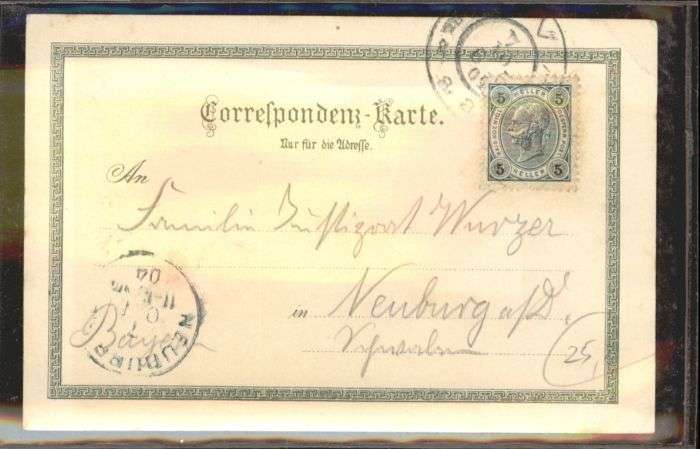 Correspondenz-Karte.
Nur für die Adresse.
5 5
HELLER
HELLER
5 5
An
Familie Justizrat Wurzer
in Neuburg a/D.
Schwaben
Bayern
04
25,